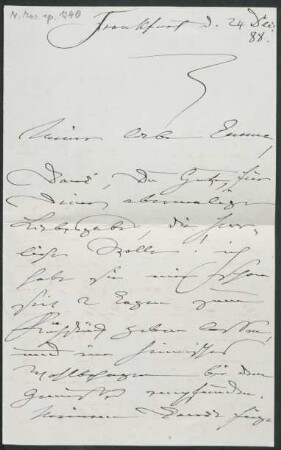 N. Mus. ep. 1240
Frankfurt d. 24 Dec.
88.
Meine liebe Emma,
Dank, Du Gute, für
Deine abermalige
Liebesgabe, die herr-
liche Stolle! ich
habe sie mir schon
seit 2 Tagen zum
Frühstück geben lassen,
und ein heimisches
Wohlbehagen bei dem
Genusse empfunden.
Meinem Dank füge